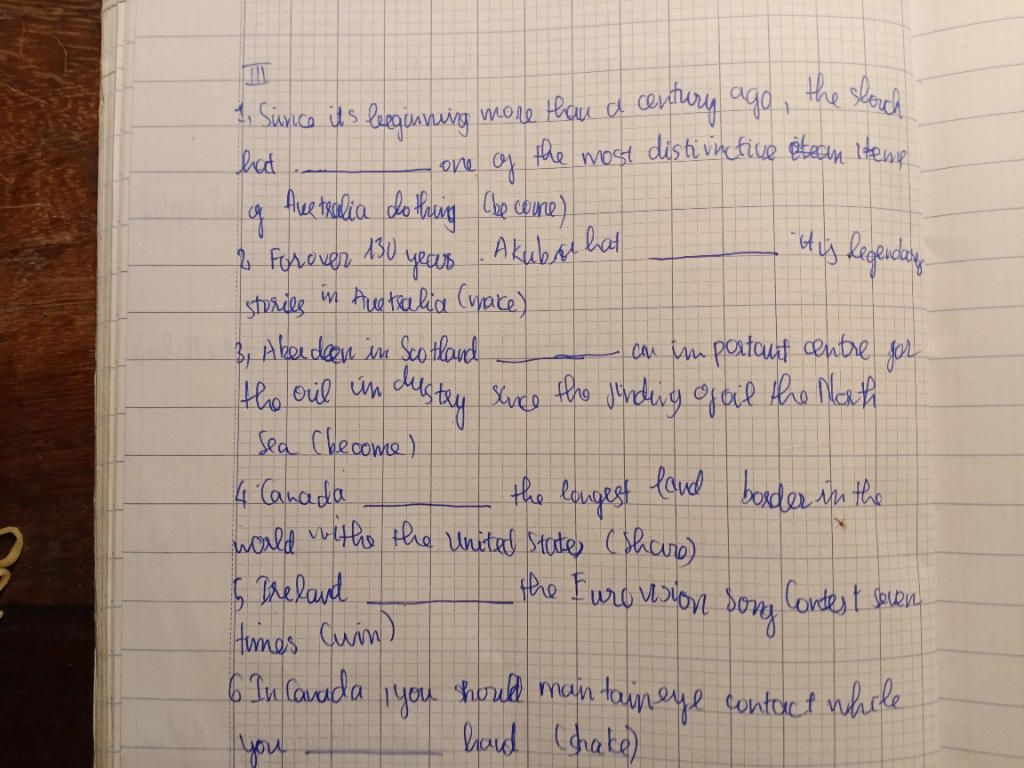 III
1, Since its beeginning more than a century ago, the slouch
hat . ________ one of the most distinctive item
of Australia clothing (be come)
2 For over 130 years . Akubra hat ________ it is legendary
stories in Australia (make)
3, Aberdeen in Scotland ________ an important centre for
the oil industry since the finding of oil the North
Sea (become)
4 Canada ________ the longest land border in the
world withe the United States (share)
5 Ireland ________ the Eurovision song Contest seven
times (win)
6 In Canada , you should maintain eye contact while
you ________ hand (shake)